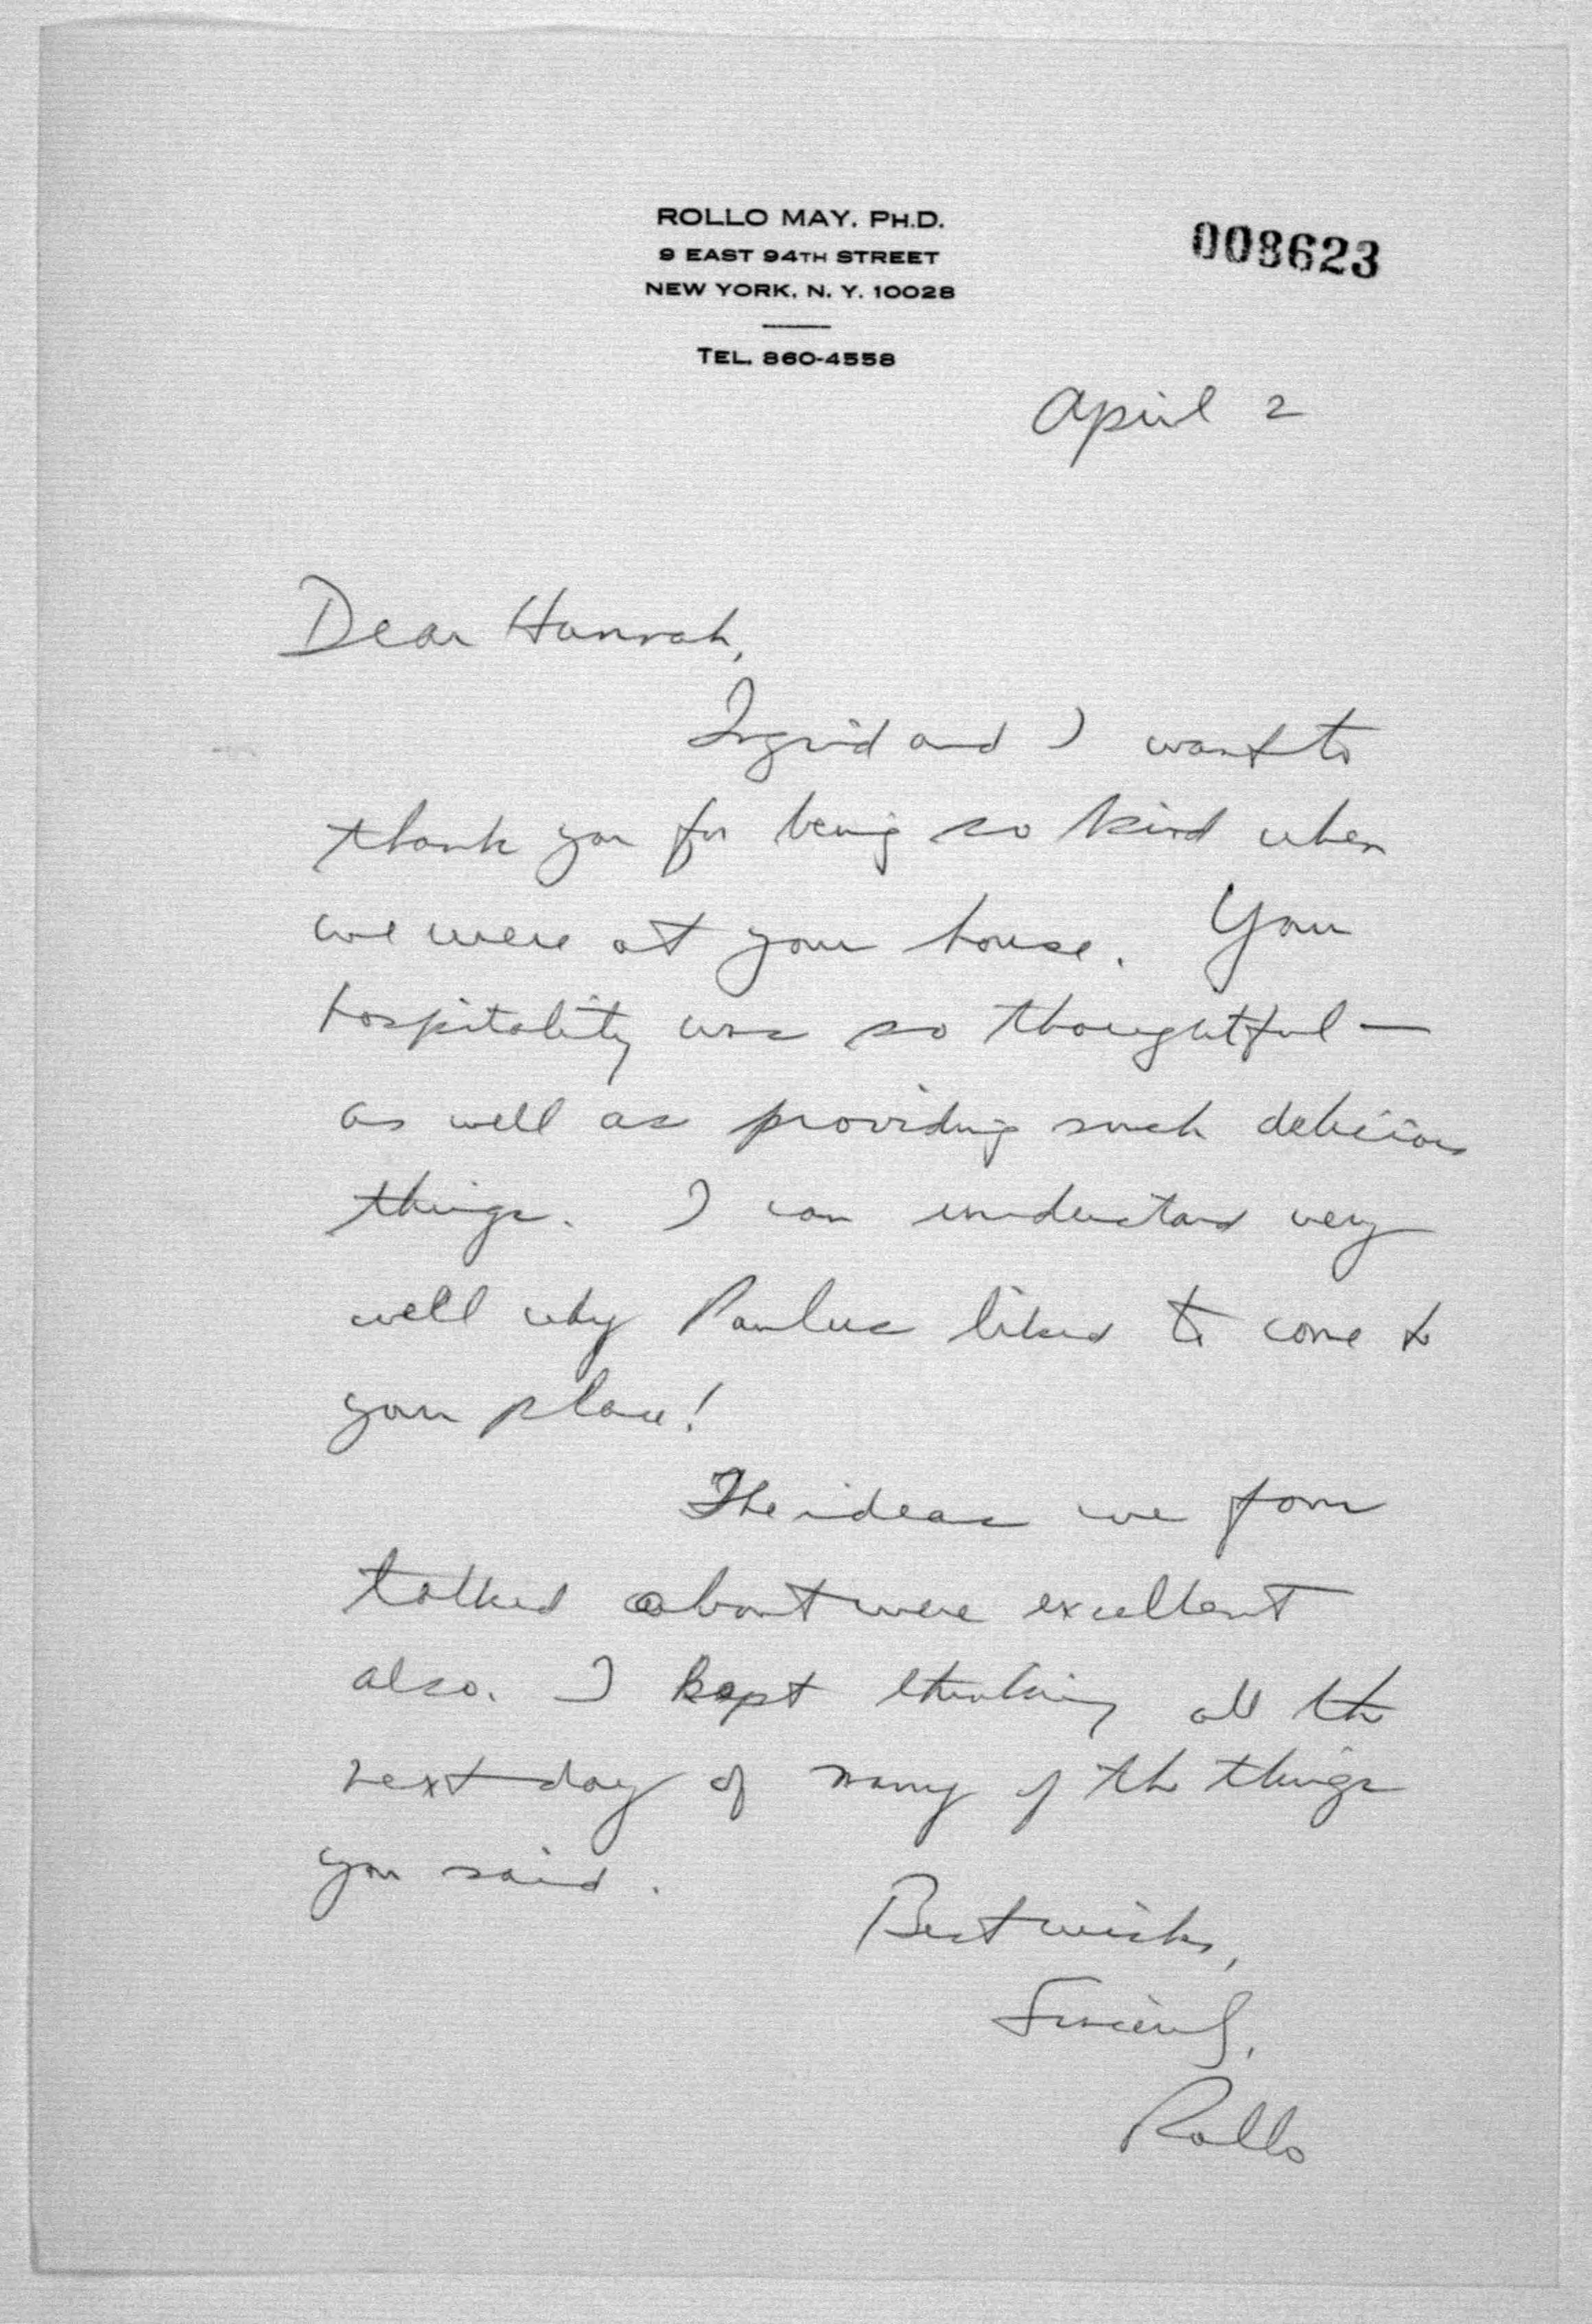 ROLLO MAY, PH.D.
9 EAST 94TH STREET
NEW YORK, N. Y. 10028
TEL. 860-4558
008623
April 2
Dear Hannah,
Ingrid and I want to
thank you for being so kind when
we were at your house. Your
hospitality was so thoughtful —
as well as providing such delicious
things. I can understand very
well why Paulus liked to come to
your place!
The ideas we four
talked about were excellent
also. I kept thinking all the
next day of many of the things
you said.
Best wishes,
Sincerely,
Rollo